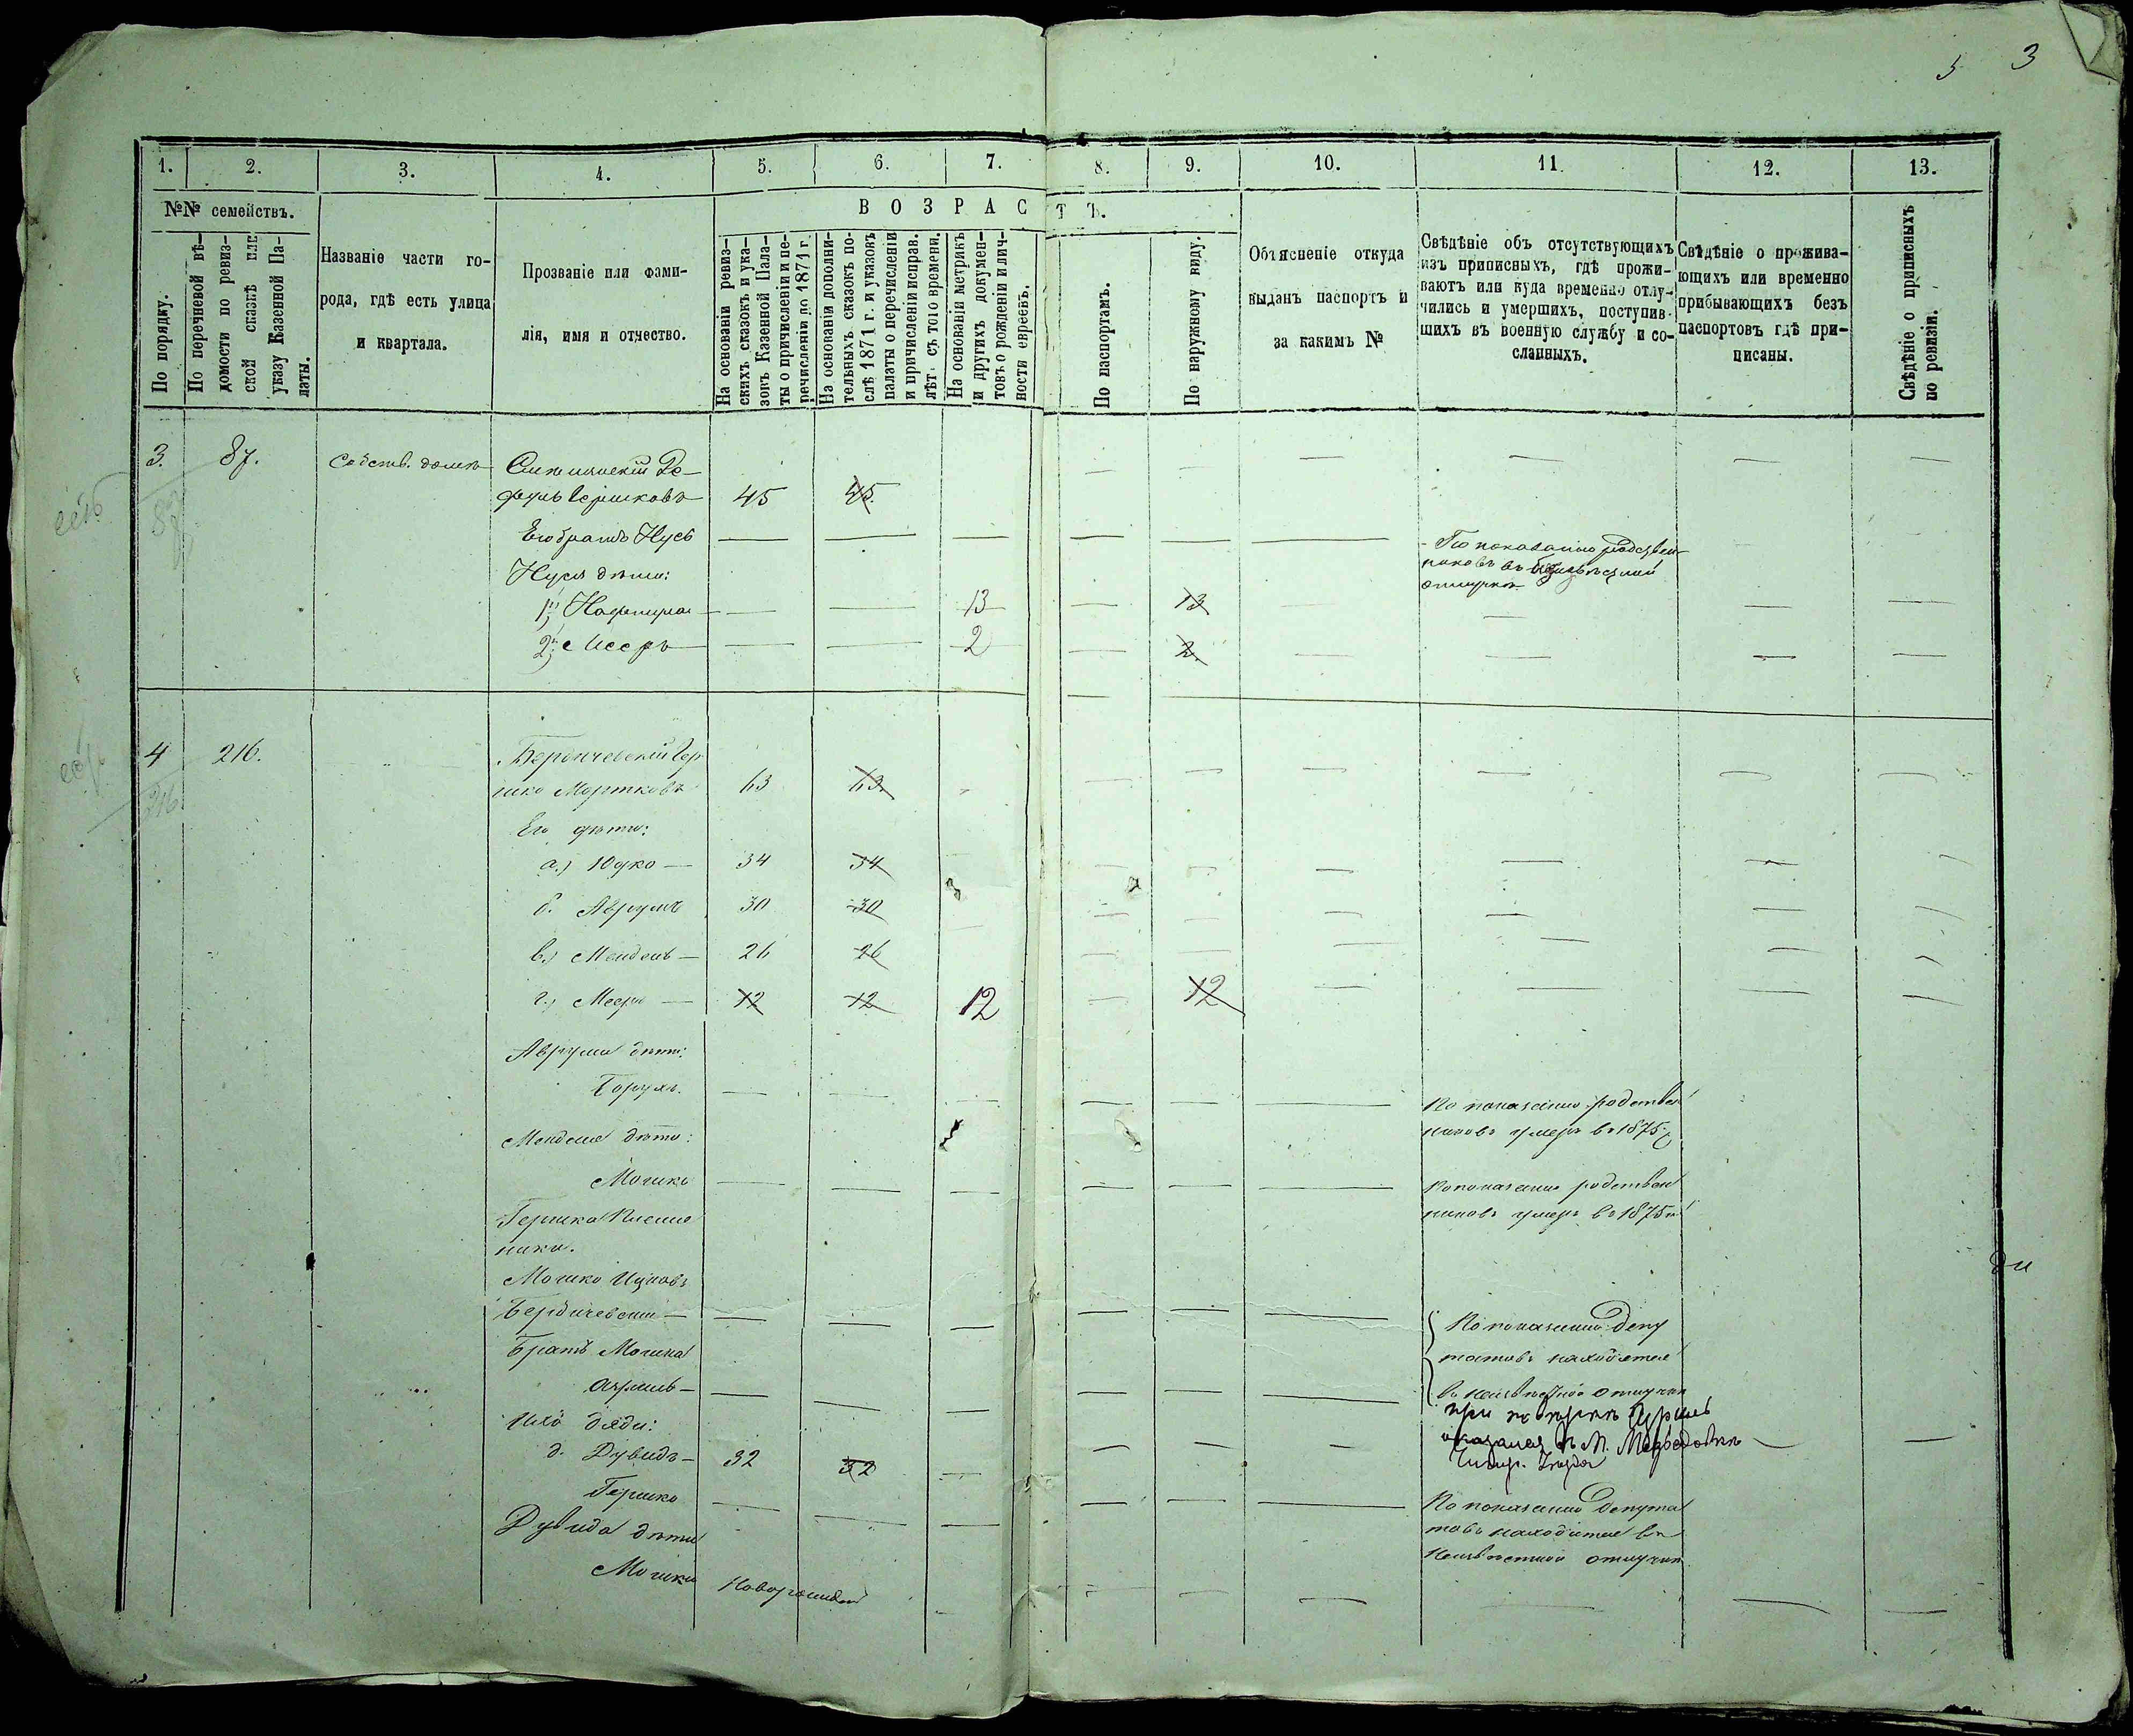 3
1. 2. 3. 4. 5. 6. 7. 8. 9. 10. 11. 12. 13.
№№ семействъ.
ВОЗРАСТЪ.
По порядку.
По перечневой вѣ-
домости по ревиз-
ской сказкѣ или
указу Казенной Па-
латы.
Названіе части го-
рода, гдѣ есть улица
и квартала.
Прозваніе или фами-
лія, имя и отчество.
На основаніи ревиз-
скихъ сказокъ и ука-
зокъ Казенной Пала-
ты о причисленіи и пе-
речисленіи до 1871 г.
На основаніи дополни-
тельныхъ сказокъ по-
слѣ 1871 г. и указокъ
палаты о перечисленіи
и причисленіи исправ.
лѣт. съ того времени.
На основаніи метрикъ
и другихъ докумен-
товъ о рожденіи и лич-
ности евреевъ.
По паспортамъ.
По наружному виду.
Объясненіе откуда
выданъ паспортъ и
за какимъ №
Свѣдѣніе объ отсутствующихъ
изъ приписныхъ, гдѣ прожи-
ваютъ или куда временно отлу-
чились и умершихъ, поступив-
шихъ въ военную службу и со-
сланныхъ.
Свѣдѣніе о прожива-
ющихъ или временно
прибывающихъ безъ
паспортовъ гдѣ при-
писаны.
Свѣдѣніе о приписныхъ
по ревизіи.
есть
3. 87. Собств. домъ
87
Гершковъ 45 45
Его братъ Нусь
По показанію родствен-
никовъ въ неизвѣстной
отлучкѣ
Нуся дѣти:
1) 13 13
2) Мееръ 2 2
есть
4 216. Бердичевскій Гер
216
шко Мортковъ 63 63
Его дѣти:
а) Юдко 34 34
б. Аврумъ 30 30
в) Мендель 26 26
г) Мееръ 12 12 12 12
Аврума дѣти:
Борухъ. По показанію родствен
никовъ умеръ въ 1875 г.
Менделя дѣти:
Мошко По показанію родствен
никовъ умеръ въ 1875 г.
Гершка племян
ники.
Мошко Ицковъ
Бердичевскій По показанію депу
Братъ Мошка татовъ находятся
въ неизвѣстной отлучкѣ
Ихъ дяди:
при
оказался въ М. Медведовкѣ
д. Дувидъ 32 32
Гершко По показанію депута
товъ находится въ
неизвѣстной отлучкѣ
Дувида дѣти
Мошко Новорожден